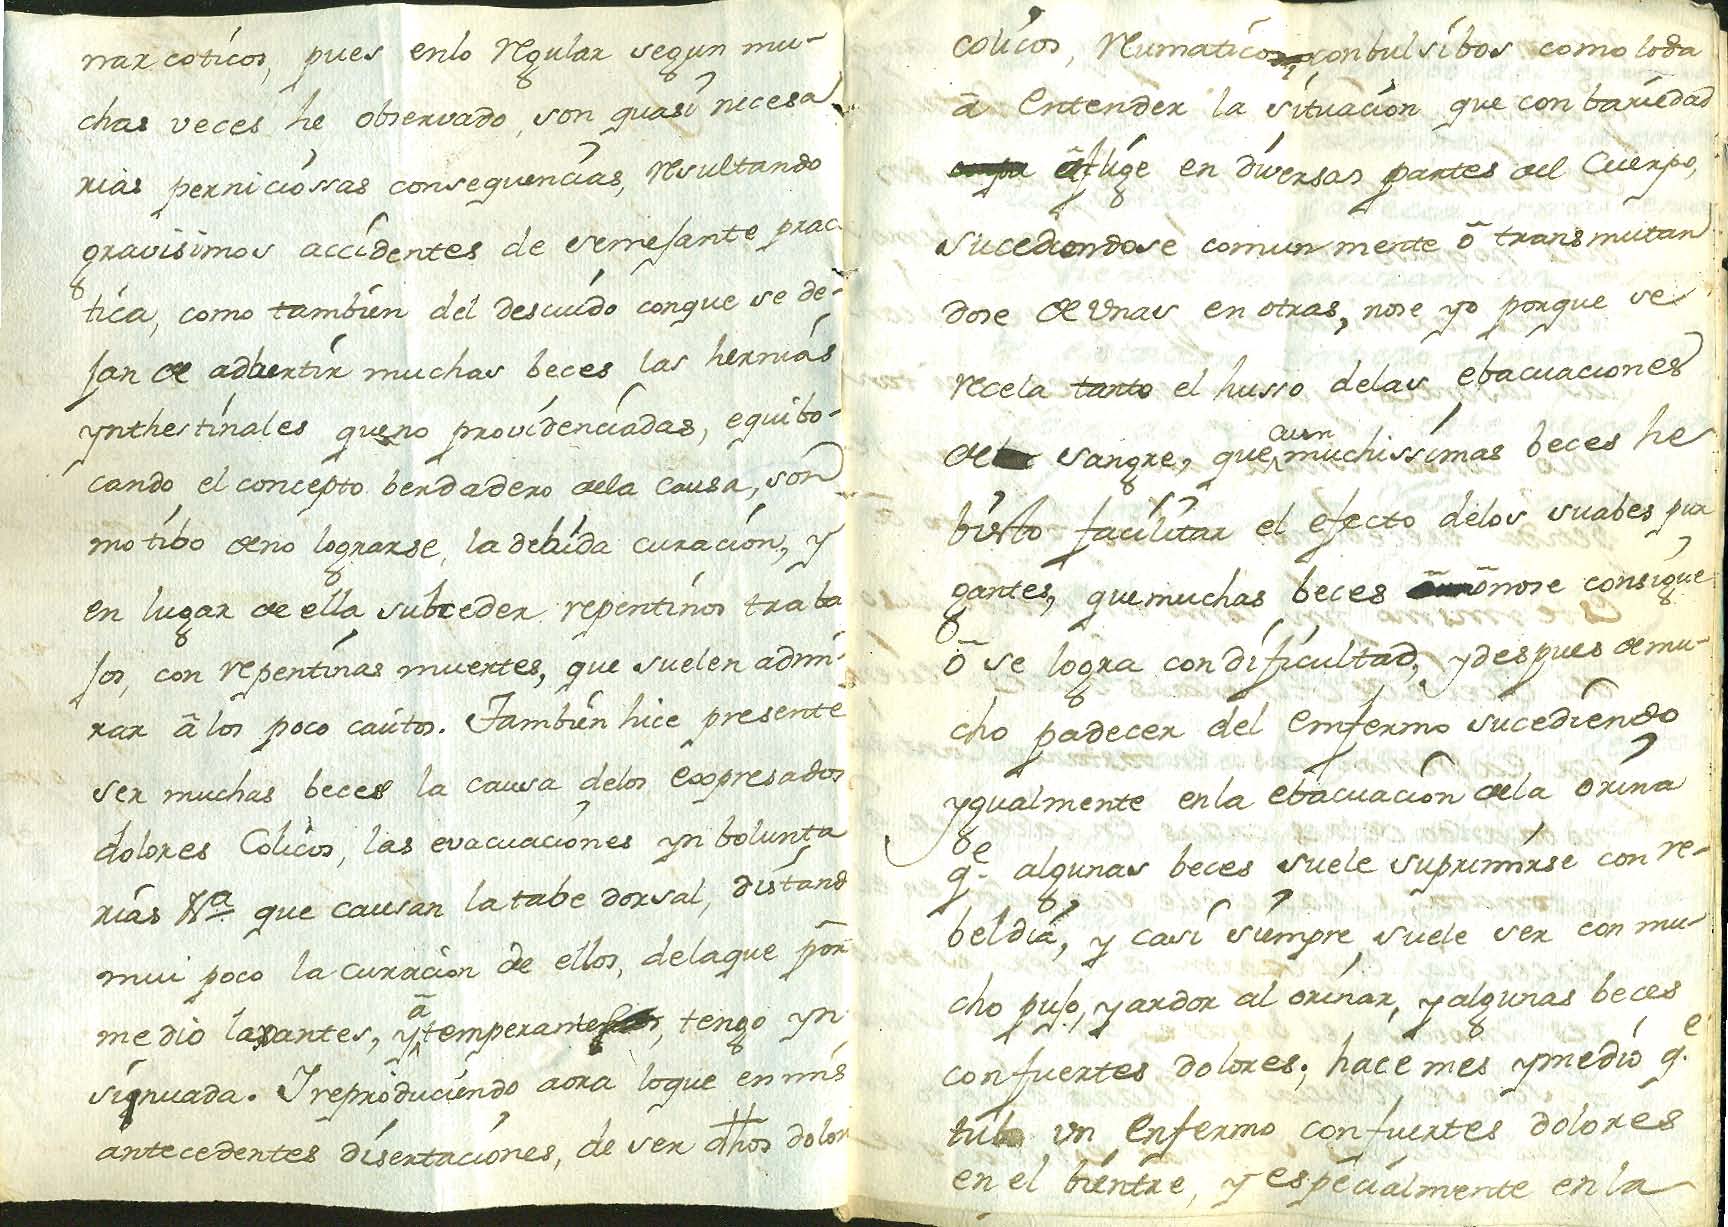 narcoticos, pues enlo regular segun mu-
chas veces he observado, son quasi necesa
rias perniciossas consequencias, resultando
gravisimos accidentes de semejante prac
tica, como tambien del descuido conque se de-
jan de adbertir muchas beces las hernias
ynthestinales queno providenciadas, equibo-
cando el concepto berdadero dela causa, son
motibo deno lograrse, la debida curacion, y
en lugar de ella subceder repentinos traba
jos, con repentinas muertes, que suelen admi-
rar â los poco cautos. Tambien hice presente
ser muchas beces la causa delos expresados
dolores Colicos, las evacuaciones ynbolunta
rias que causan la tabe dorsal, distand
mui poco la curacion de ellos, delaque por
medio laxantes, y â temperantes, tengo yn
signuada. I reproduciendo aora loque en mis
antecedentes disertaciones, de ser dhos dolor
colicos, reumaticos, conbulsibos como loda
â entender la situacion que con bariedad
aflige en diversas partes del Cuerpo,
sucediendose comunmente ô transmutan
dose de unas en otras, nose yo porque se
recela tanto el husso delas ebacuaciones
de sangre, que aun muchissimas beces he
bisto facilitar el efecto delos suabes pur
gantes, quemuchas beces ô nose consigue
ô se logra con dificultad, y despues de mu-
cho padecer del enfermo sucediendo
ygualmente enla ebacuacion dela orina
qe. algunas beces suele suprimirse con re-
beldia, y casi siempre suele ser con mu-
cho pujo, y ardor al orinar, y algunas beces
confuertes dolores; hace mes ymedio qe.
tube un enfermo confuertes dolores
en el bientre, y especialmente en la